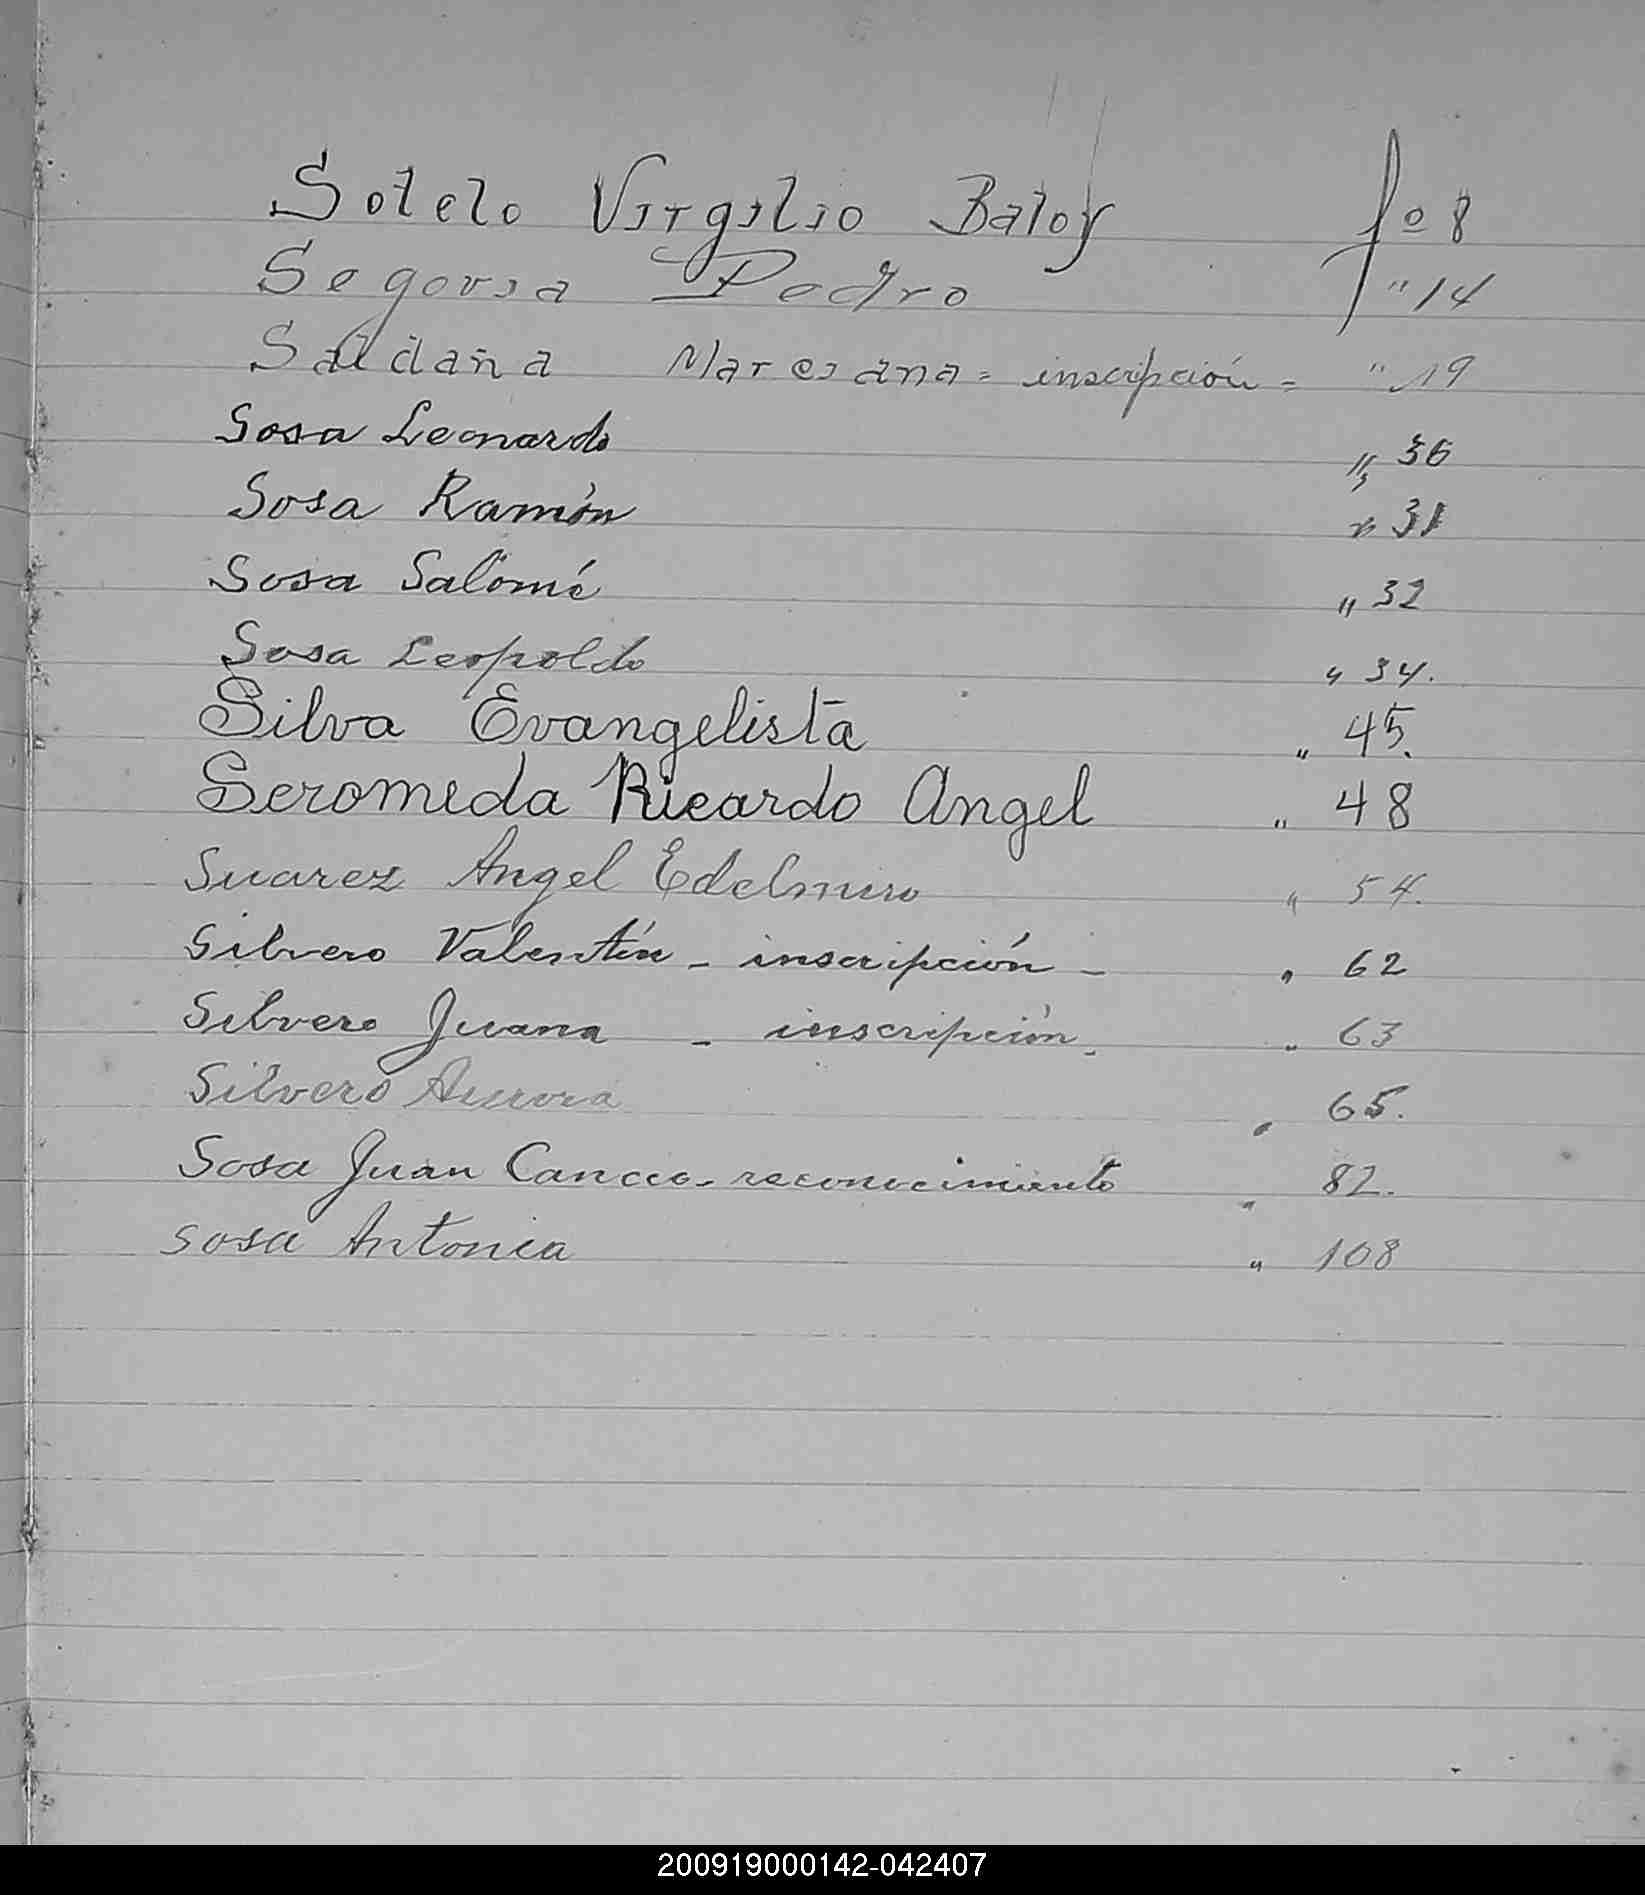 Sotelo Virgilio Baloy fo 8
Segovia Pedro " 14
Saldaña Marciana = inscripción = " 19
Sosa Leonardo " 36
Sosa Ramón " 31
Sosa Salomé " 32
Sosa Leopoldo " 34.
Silva Evangelista " 45.
Seromeda Ricardo Angel " 48
Suarez Angel Edelmiro " 54.
Silvero Valentín - inscripción - " 62
Silvero Juana - inscripción. " 63
Silvero Aurora " 65.
Sosa Juan - reconocimiento " 82.
Sosa Antonia " 108
200919000142-042407